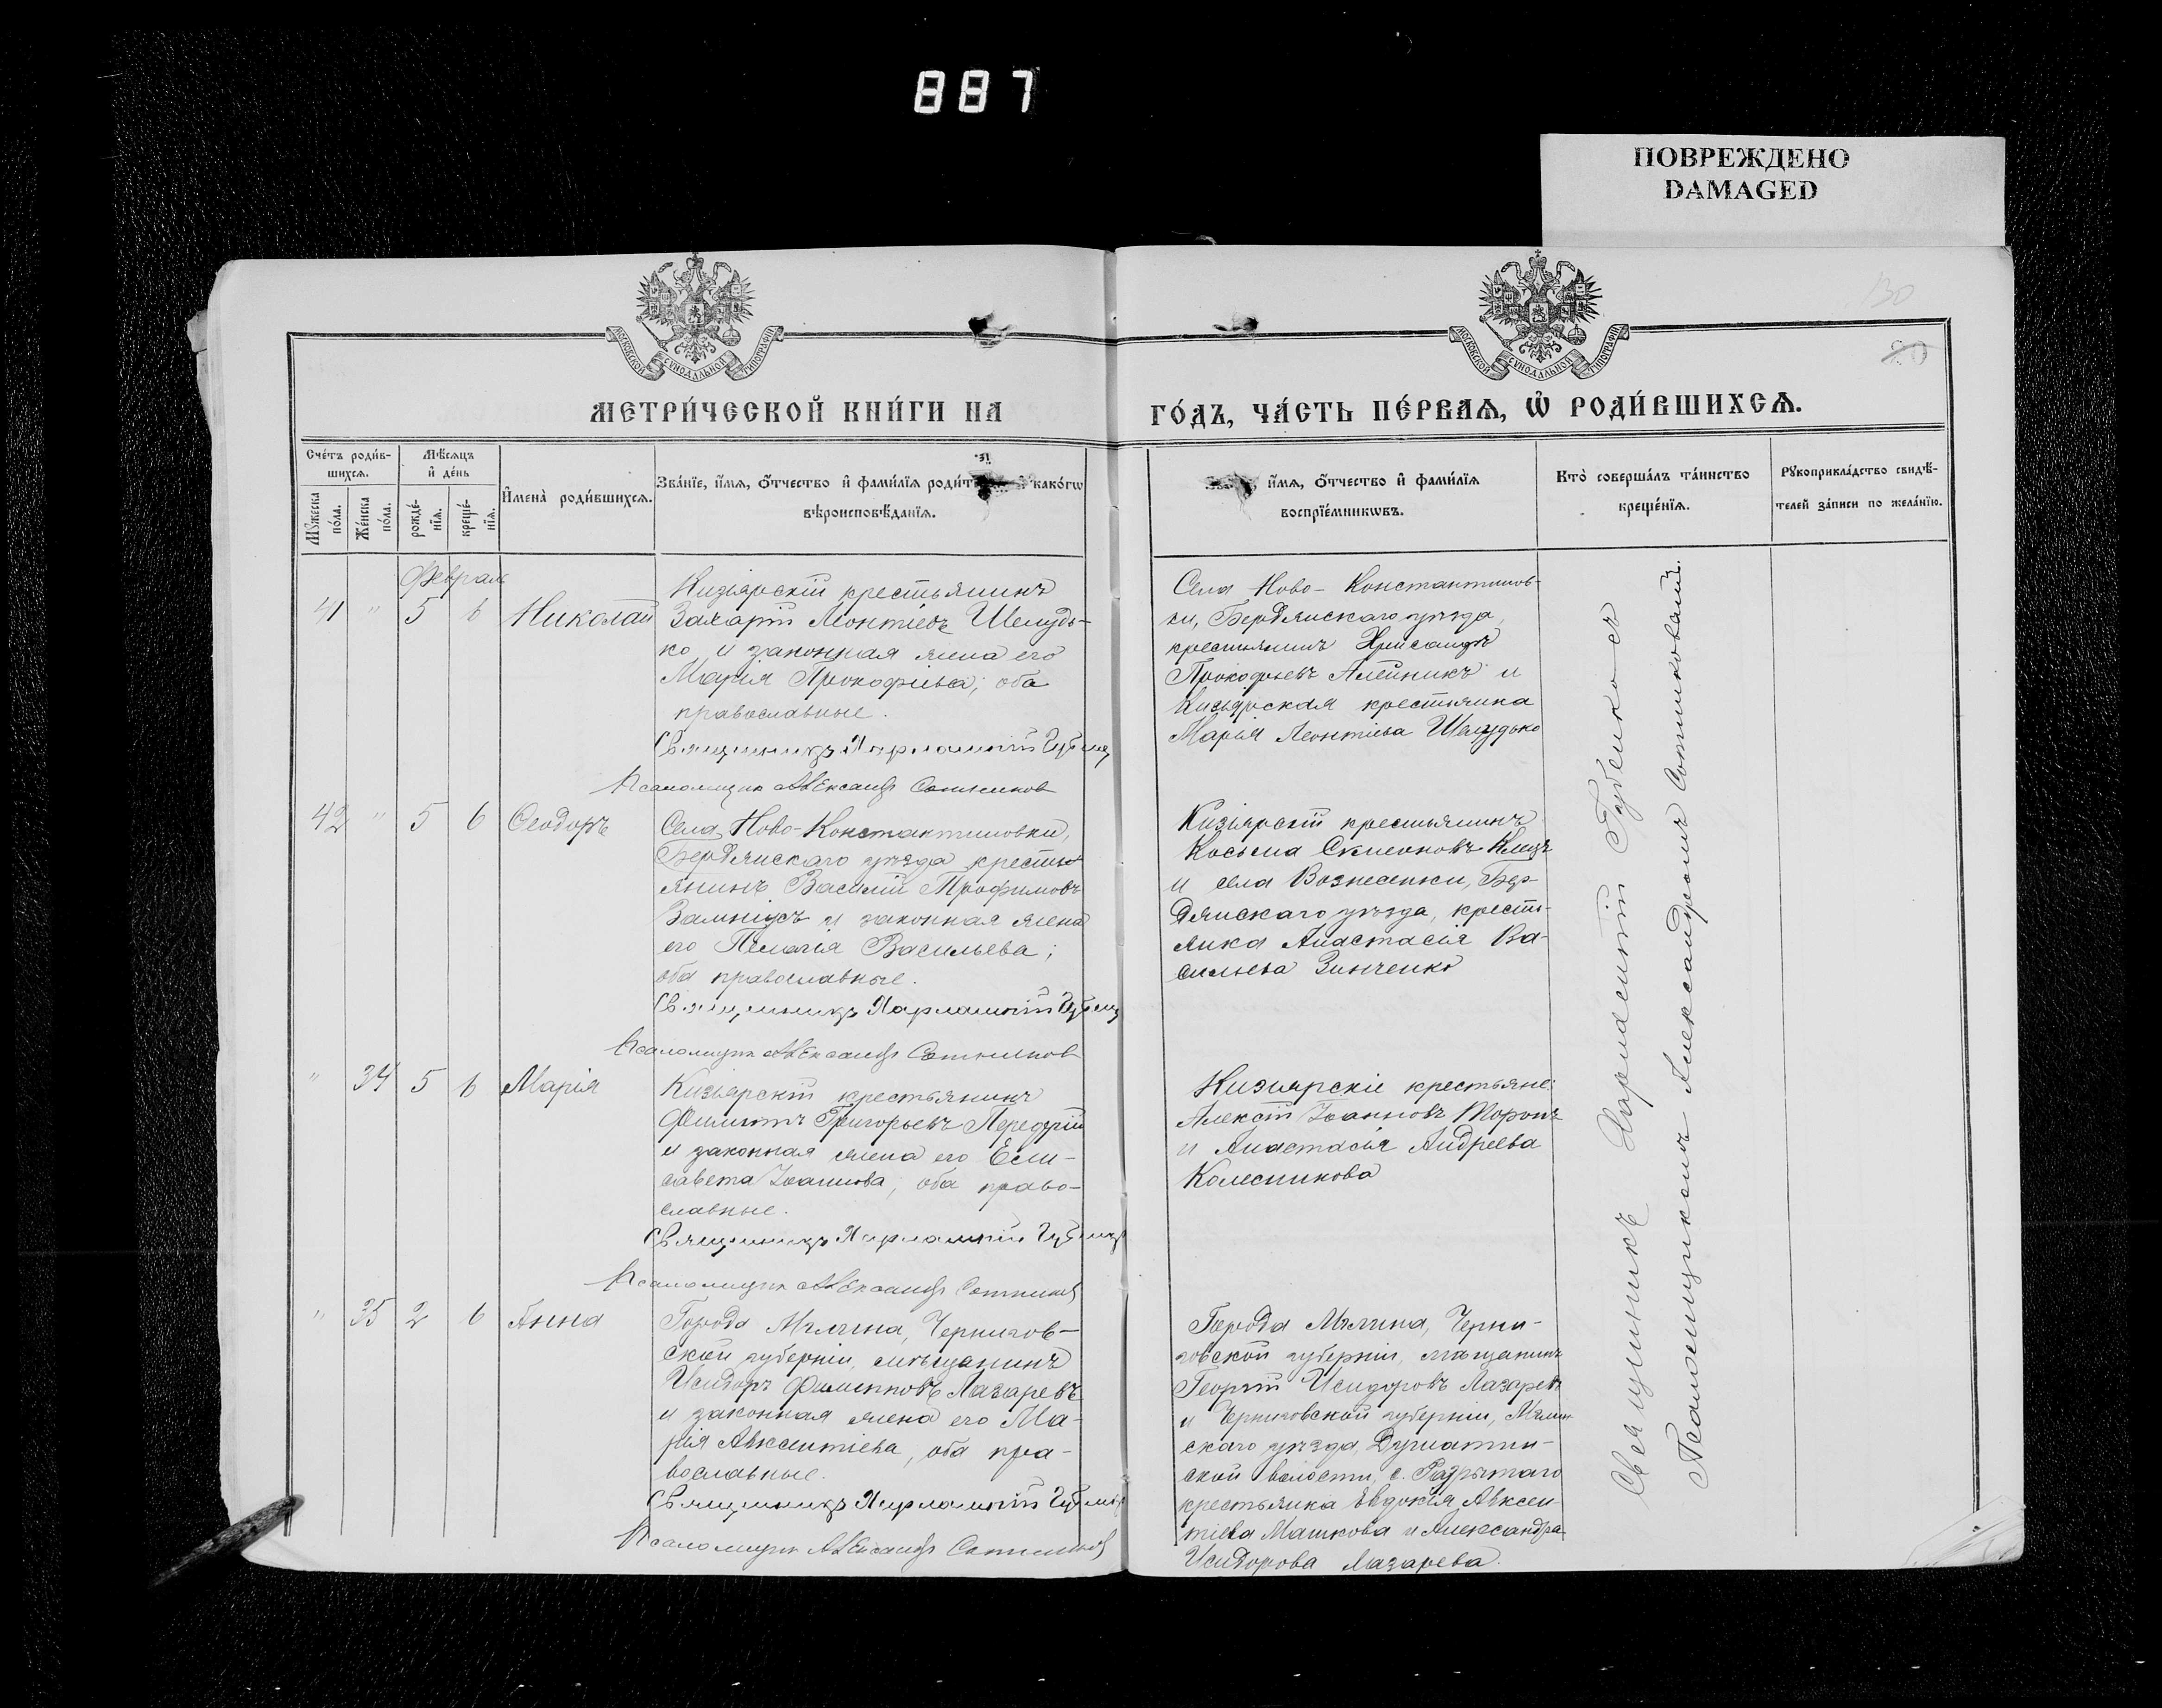 887
ПОВРЕЖДЕНО
DAMAGED
130
МОСКОВСКОЙ СѴНОДАЛЬНОЙ ТИПОГРАФІИ
МОСКОВСКОЙ СѴНОДАЛЬНОЙ ТИПОГРАФІИ
МЕТРИ́ЧЕСКОЙ КНИ́ГИ НА
ГО́ДЪ, ЧА́СТЬ ПЕ́РВАѦ, Ѡ РОДИ́ВШИХСѦ.
Сче́тъ роди́в-
шихсѧ.
Мѣ́сѧцъ
и де́нь
Мꙋ́жеска
по́ла.
Же́нска
по́ла.
рожде́-
нїѧ.
креще́-
нїѧ.
И́мена̀ роди́вшихсѧ.
Зва́нїе, и́мѧ, о́тчество и фами́лїѧ и како́гѡ
вѣроисповѣ́данїѧ.
и́мѧ, о́тчество и фами́лїѧ
воспрїе́мникѡвъ.
Кто̀ соверша́лъ та́инство
креще́нїѧ.
Рꙋкоприкла́дство свидѣ́-
телей за́писи по жела́нїю.
Февраль
41 " 5 6 Николай
Кизіярскій крестьянинъ
Захарій Леонтіевъ Шелудь-
ко и законная жена его
Марія Прокофіева; оба
православные.
Священникъ Харлампій Губенко
Псаломщикъ Александръ Сотников
Села Ново-Константинов-
ки, Бердянскаго уѣзда,
крестьянинъ Хрисанфъ
Прокофьевъ Алейникъ и
Кизіярская крестьянка
Марія Леонтіева Шелудько
42 " 5 6 Ѳеодоръ
Села Ново-Константиновки,
Бердянскаго уѣзда крестья
янинъ Василій Трофимовъ
и законная жена
его Пелагія Васильева;
оба православные.
Священникъ Харлампій Губенко
Псаломщикъ Александръ Сотников
Кизіярскій крестьянинъ
Косьма Симеоновъ
и села Вознесенки, Бер-
дянскаго уѣзда, кресть-
янка Анастасія Ва-
сильева Зинченко
" 34 5 6 Марія
Кизіярскій крестьянинъ
Филиппъ Григорьевъ Передерій
и законная жена его Ели-
савета Іоаннова; оба право-
славные.
Священникъ Харлампій Губенко
Псаломщикъ Александръ Сотников
Кизіярскіе крестьяне:
Алексій Іоанновъ
и Анастасія Андреева
Колесникова
" 35 2 6 Анна
Города Мглина, Чернигов-
ской губерніи, мѣщанинъ
Исидоръ Филипповъ Лазаревъ
и законная жена его Ма-
рія Авксентіева, оба пра-
вославные.
Священникъ Харлампій Губенко
Псаломщикъ Александръ Сотников
Города Мглина, Черни-
говской губерніи, мѣщанинъ
Георгій Исидоровъ Лазаревъ
и Черниговской губерніи, Мглин-
скаго уѣзда,
ской волости, с. Разрытаго
крестьянка Евдокія Авксен-
тіева Машкова и Александра
Исидорова Лазарева.
Священникъ Харлампій Губенко съ
Псаломщикомъ Александромъ Сотниковымъ.